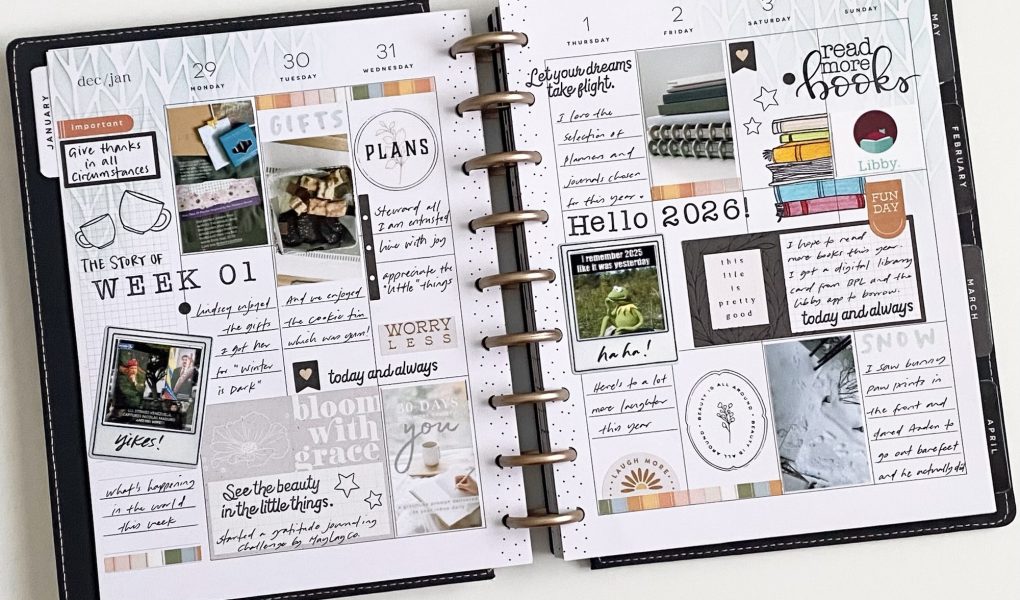 dec/jan
29
MONDAY
30
TUESDAY
31
WEDNESDAY
JANUARY
important
Give thanks
in all
circumstances
THE STORY OF
WEEK 01
Lindsey enjoyed
the gifts
I got her
for "Winter
is Dark"
GIFTS
And we enjoyed
the cookie tin
which was yum!
PLANS
Steward all
I am entrusted
here with joy
appreciate the
"little" things
WORRY
LESS
today and always
Yikes!
what's happening
in the world
this week
bloom
with
grace
See the beauty
in the little things.
started a gratitude journaling
challenge by MayLayCo.
30 DAYS
you
1
THURSDAY
2
FRIDAY
3
SATURDAY
SUNDAY
Let your dreams
take flight.
I love the
selection of
planners and
journals chosen
for this year.
read
more
books
Libby.
FUN
DAY
Hello 2026!
I remember 2025
like it was yesterday
haha!
Here's to a lot
more laughter
this year
LAUGH MORE
this
life is
pretty
good
I hope to read
more books this year.
I got a digital library
card from BPL and the
Libby app to borrow.
today and always
BEAUTY IS ALL AROUND
SNOW
I saw bunny
paw prints in
the front and
dared Arden to
go out barefeet
and he actually did
MAY
FEBRUARY
MARCH
APRIL